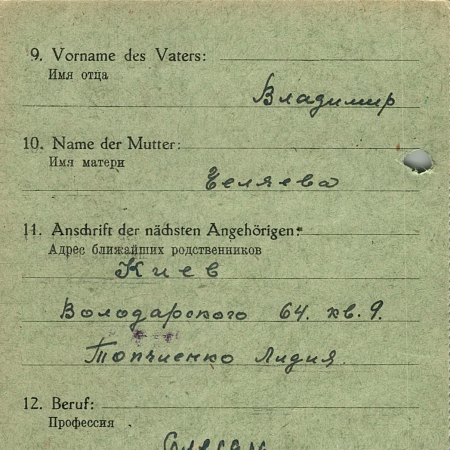 9. Vorname des Vaters:
Имя отца
Владимир
10. Name der Mutter:
Имя матери
Беляева
11. Anschrift der nächsten Angehörigen:
Адрес ближайших родственников
Киев
Володарского 64. кв. 9.
Топчиенко Лидия
12. Beruf:
Профессия